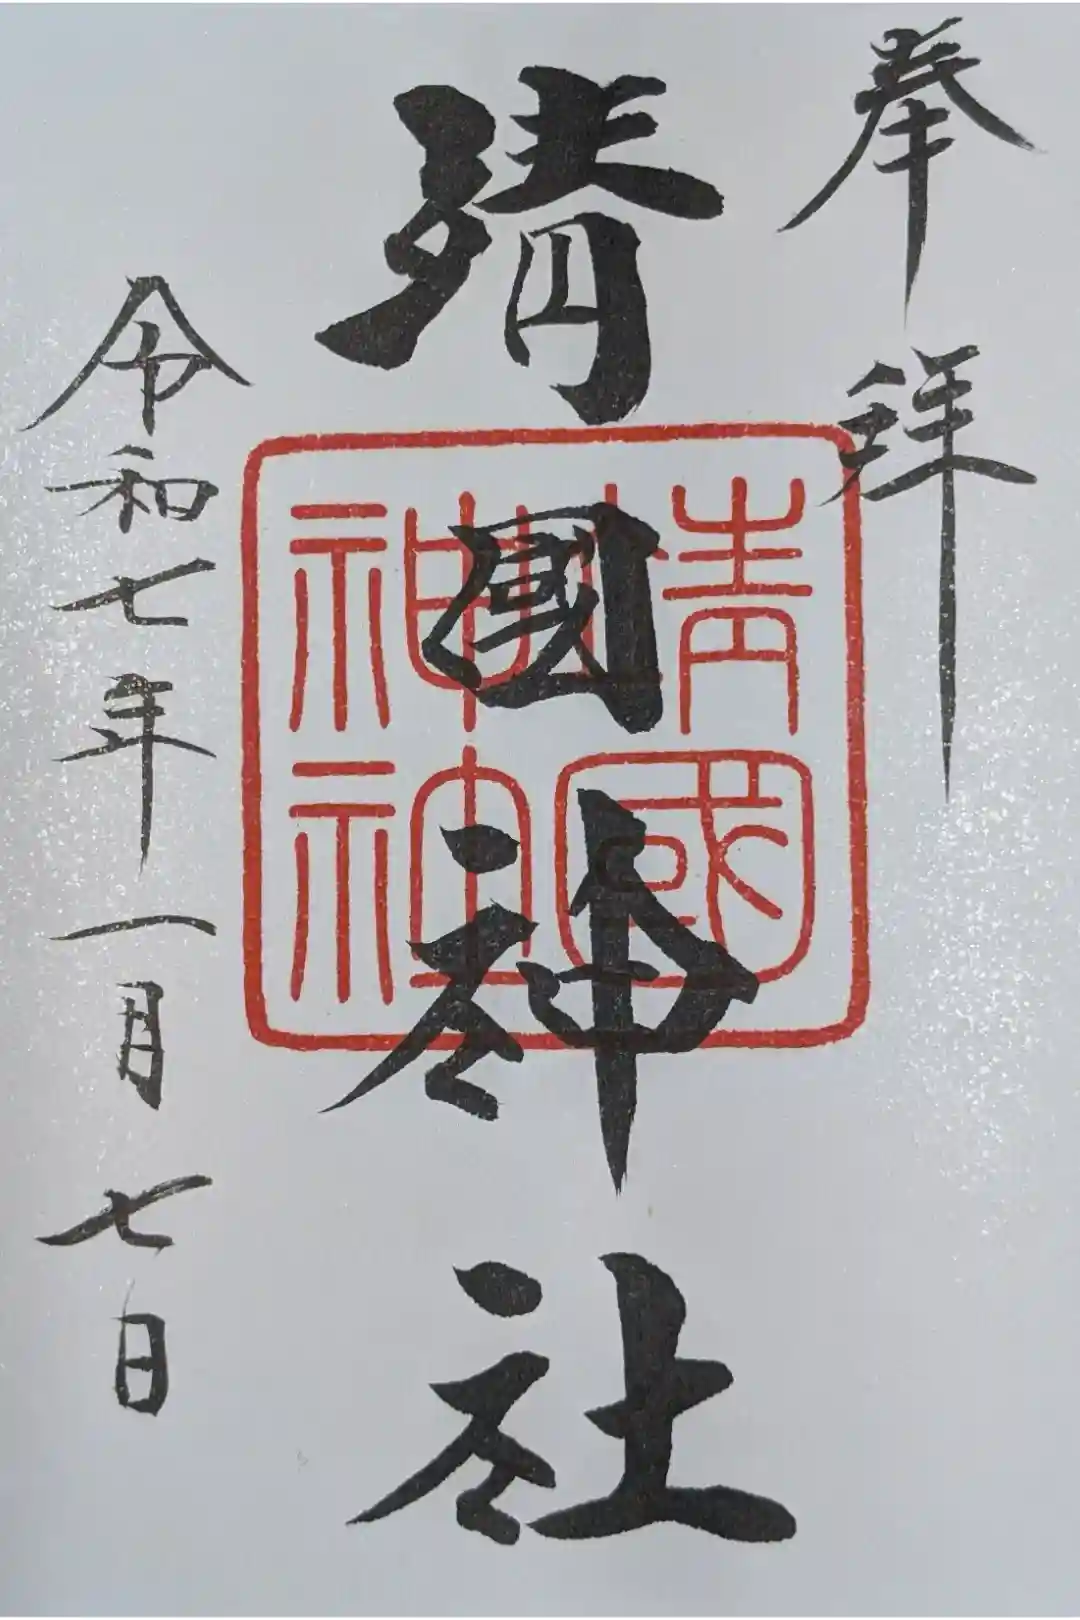 奉拝
靖國神社
令和七年一月七日
靖國
神社